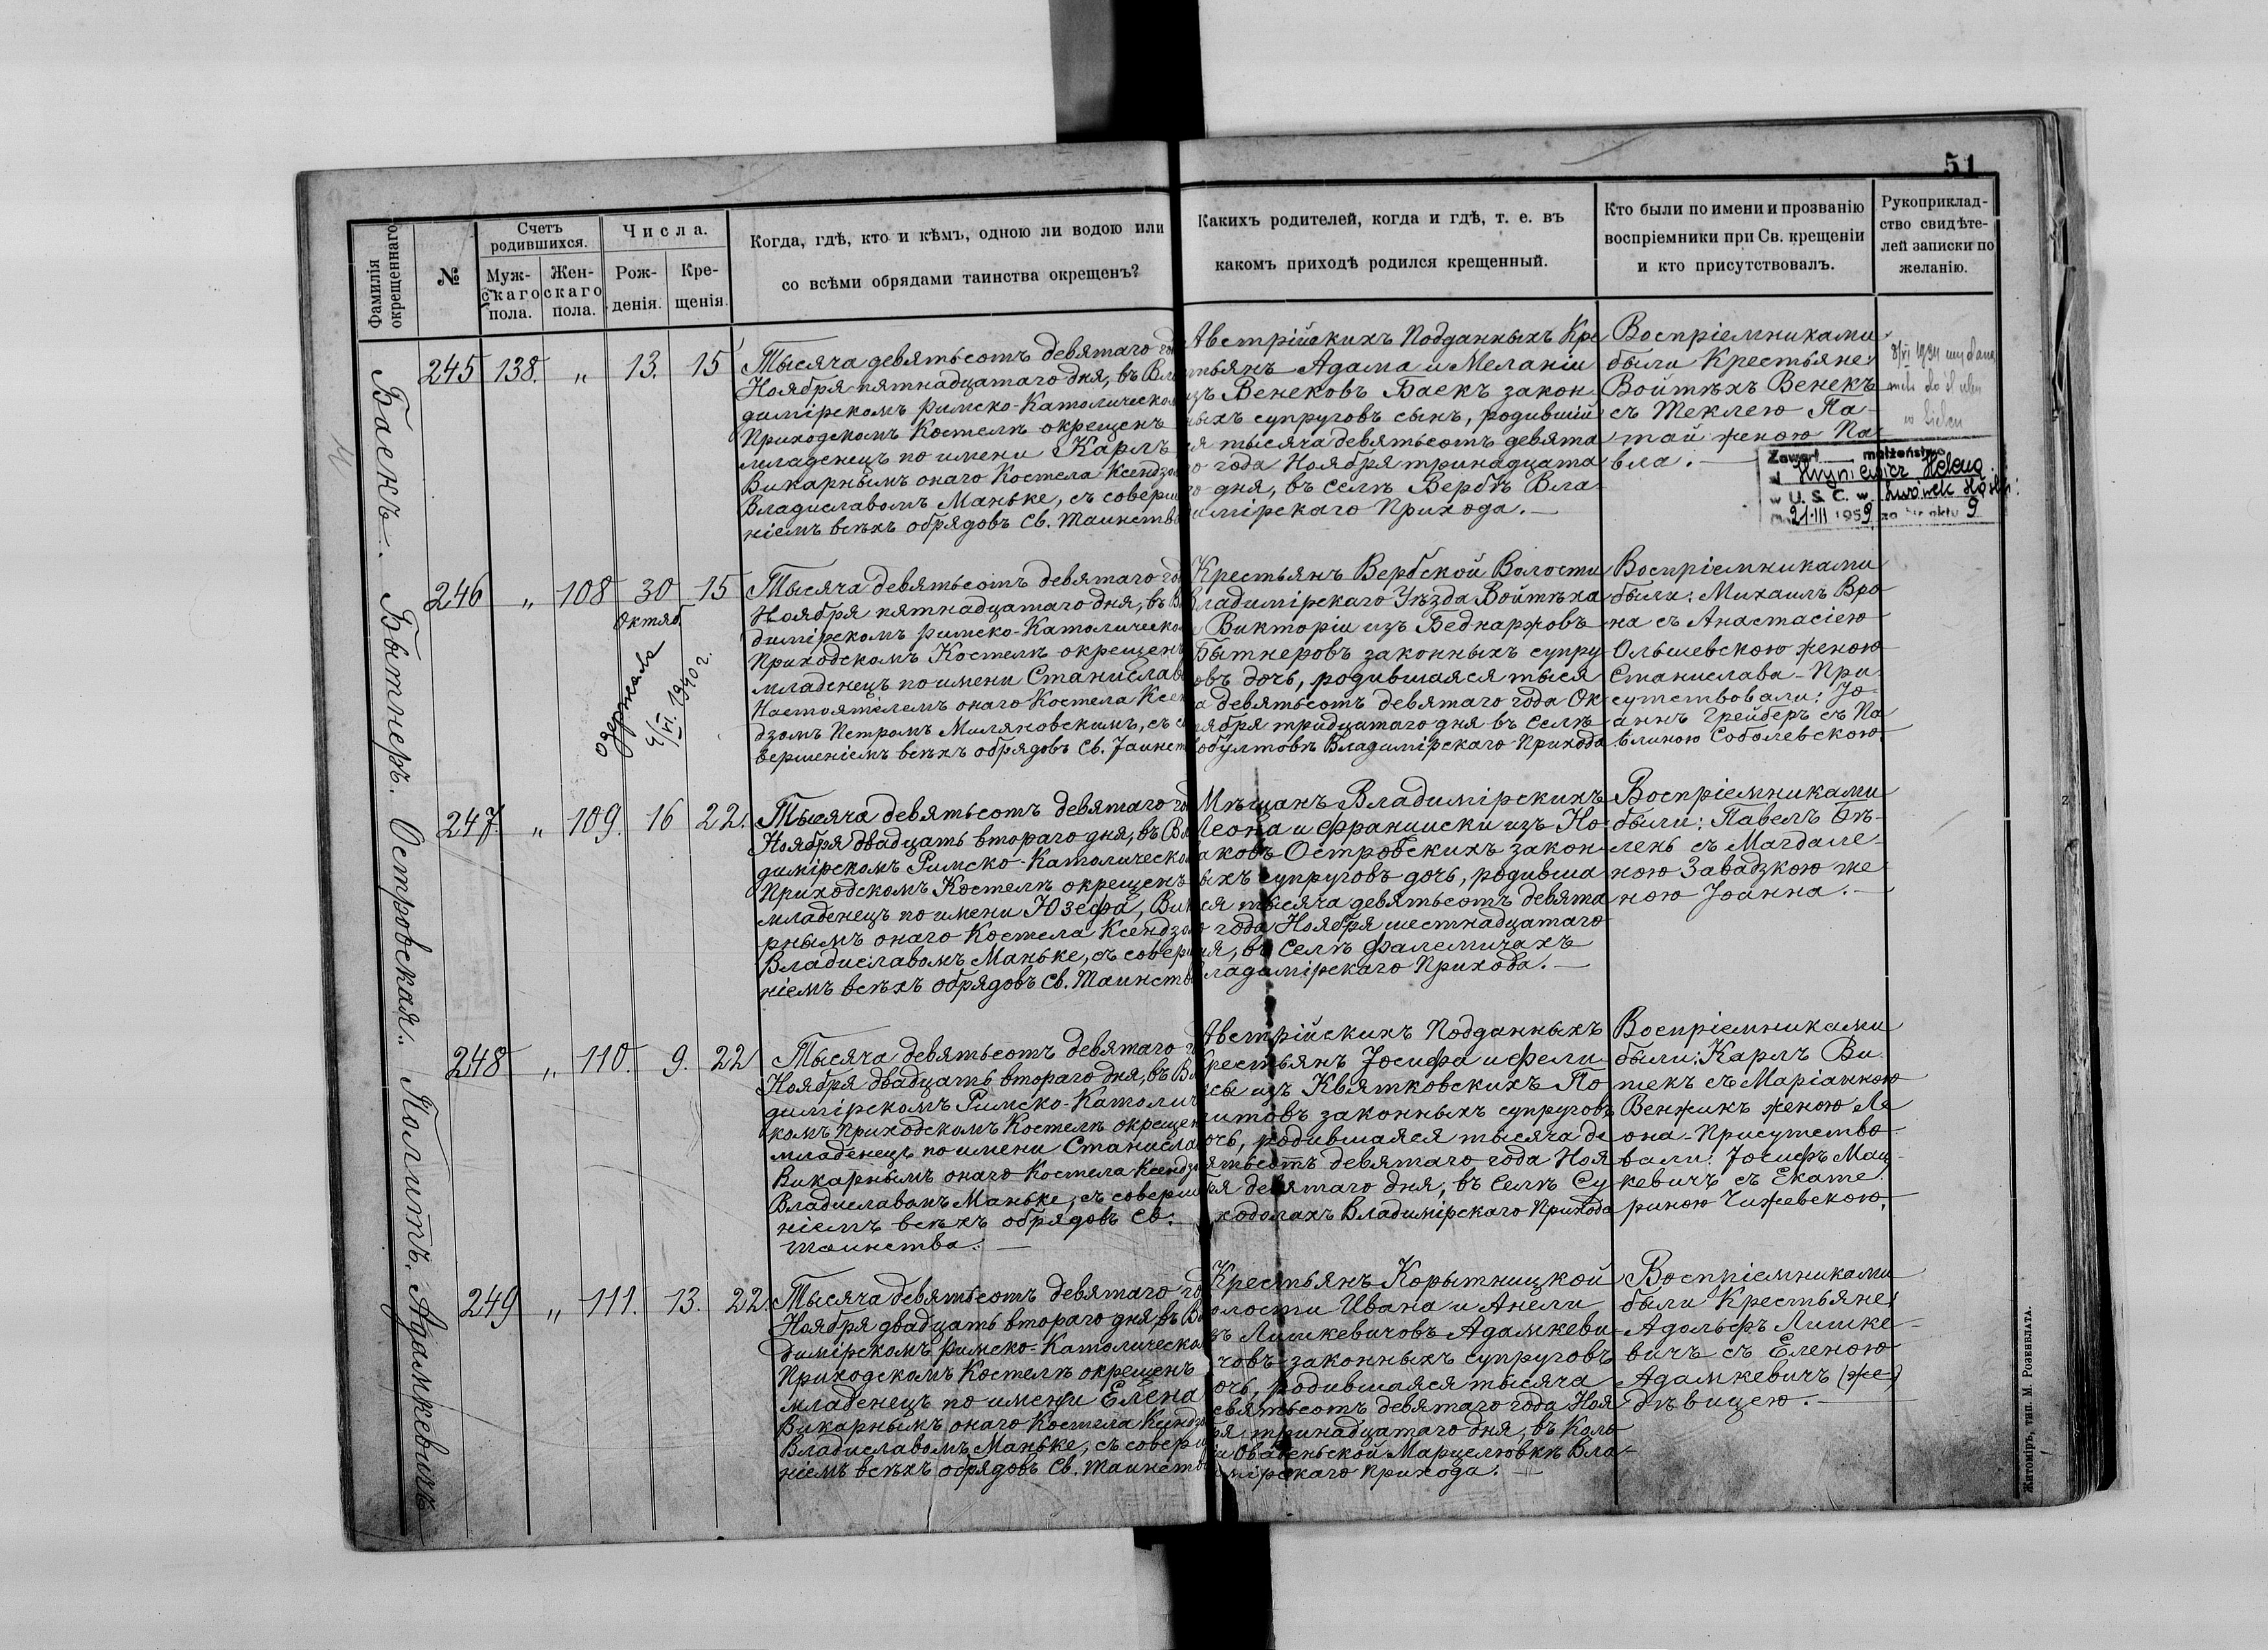 51
Фамилія окрещеннаго
№
Счетъ родившихся.
Муж-
скаго
пола.
Жен-
скаго
пола.
Числа.
Рож-
денія.
Кре-
щенія.
Когда, гдѣ, кто и кѣмъ, одною ли водою или
со всѣми обрядами таинства окрещенъ?
Какихъ родителей, когда и гдѣ, т. е. въ
какомъ приходѣ родился крещенный.
Кто были по имени и прозванію
воспріемники при Св. крещеніи
и кто присутствовалъ.
Рукоприклад-
ство свидѣте-
лей записки по
желанію.
Баекъ.
245 138. " 13. 15
Тысяча девятьсотъ девятаго го
Ноября пятнадцатаго дня, въ Вла
димірскомъ Римско-Католическом
Приходскомъ Костелѣ окрещенъ
младенецъ по имени Карлъ
Викарнымъ онаго Костела Ксендзом
Владиславомъ Маньке, съ соверше
ніемъ всѣхъ обрядовъ Св. Таинства
Австрійскихъ Подданныхъ Кре
тьянъ Адама и Меланіи
изъ Венековъ Баекъ закон-
ныхъ супруговъ сынъ, родившій
ся тысяча девятьсотъ девята
го года Ноября тринадцата
го дня, въ селѣ Вербѣ Вла
имірскаго Прихода.
Воспріемниками
были Крестьяне:
Войтѣхъ Венекъ
съ Теклею Па-
тай женою Па-
вла.
8/VI 1934
Zawarł małżeństwo
Hryniewicz Helena
w U. S. C. w Lwówek
21-III 1959 za Nr aktu 9
Бытнеръ.
246 " 108 30 15
Октяб.
одержала
4/VI. 1940 г.
Тысяча девятьсотъ девятаго го
Ноября пятнадцатаго дня, въ В
димірскомъ Римско-Католическо
Приходскомъ Костелѣ окрещенъ
младенецъ по имени Станислав
Настоятелемъ онаго Костела Ксен
дзомъ Петромъ Миляновскимъ, съ с
вершеніемъ всѣхъ обрядовъ Св. Таинст
Крестьянъ Вербской Волости
Владимірскаго Уѣзда Войтѣха
и Викторіи изъ Беднаржовъ
Бытнеровъ законныхъ супру-
овъ дочь, родившаяся тыся
а девятьсотъ девятаго года Ок-
тября тридцатаго дня въ Селѣ
Хобултовѣ Владимірскаго Прихода
Воспріемниками
были: Михаилъ Вро
на съ Анастасіею
Ольшевскою женою
Станислава - При
сутствовали: Іо-
аннъ Грейберъ съ Па
влиною Соболевскою.
Островская.
247. " 109. 16 22.
Тысяча девятьсотъ девятаго го
Ноября двадцать втораго дня, въ Вл
димірскомъ Римско-Католическо
Приходскомъ Костелѣ окрещенъ
младенецъ по имени Юзефа, Вик
рнымъ онаго Костела Ксендзом
Владиславомъ Маньке, съ соверш
ніемъ всѣхъ обрядовъ Св. Таинств
Мѣщанъ Владимірскихъ
Леона и Франциски изъ Но-
аковъ Островскихъ закон-
ыхъ супруговъ дочь, родивша
ся тысяча девятьсотъ девята
го года Ноября шестнадцатаго
ня, въ Селѣ Фалемичахъ
Владимірскаго Прихода.
Воспріемниками
были: Павелъ Бѣ-
лень съ Магдале-
ною Завадзкою же
ною Іоанна.
Политъ.
248 " 110. 9. 22
Тысяча девятьсотъ девятаго г
Ноября двадцать втораго дня, въ Вл
димірскомъ Римско-Католич
комъ Приходскомъ Костелѣ окрещен
младенецъ по имени Станисла
Викарнымъ онаго Костела Ксендзо
Владиславомъ Маньке, съ соверше
ніемъ всѣхъ обрядовъ Св.
таинства.
Австрійскихъ Подданныхъ
Крестьянъ Іосифа и Фели
ксы изъ Квятковскихъ По
литовъ законныхъ супруговъ
очь, родившаяся тысяча де
вятьсотъ девятаго года Ноя
бря девятаго дня, въ Селѣ Су
ходолахъ Владимірскаго Прихода
Воспріемниками
были: Карлъ Ви
текъ съ Маріанною
Венжикъ женою Ле
она - Присутство
вали: Іосифъ Мац-
кевичъ съ Екате
риною Чижевскою.
Адамкевичъ
249 " 111. 13. 22.
Тысяча девятьсотъ девятаго го
Ноября двадцать втораго дня, въ Вл
димірскомъ Римско-Католическом
Приходскомъ Костелѣ окрещенъ
младенецъ по имени Елена
Викарнымъ онаго Костела Ксендзо
Владиславомъ Маньке, съ соверш
ніемъ всѣхъ обрядовъ Св. Таинств
Крестьянъ Корытницкой
олости Ивана и Анели
зъ Лишкевичовъ Адамкеви
човъ законныхъ супруговъ
очь, родившаяся тысяча
евятьсотъ девятаго года Ноя
бря тринадцатаго дня, въ Коло
іи Оваденьской Марцелювкѣ Вла-
имірскаго Прихода.
Воспріемниками
были Крестьяне:
Адольфъ Лишке-
вичъ съ Еленою
Адамкевичъ (же)
дѣвицею.
Житоміръ, тип. М. Розенблата.